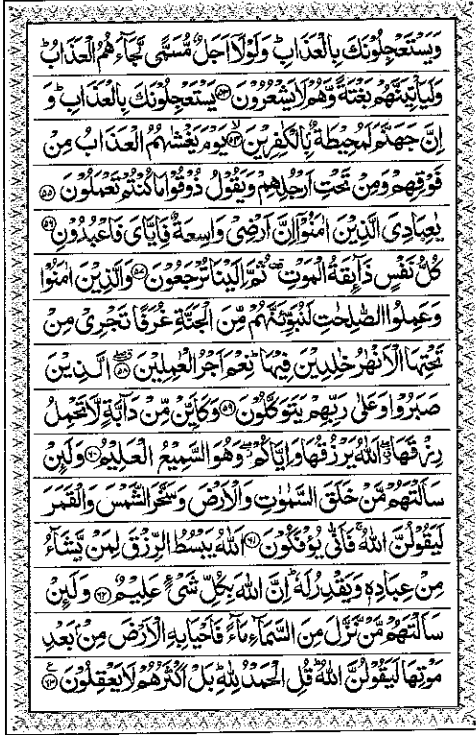 وَيَسْتَعْجِلُوْنَكَ بِالْعَذَابِ ؕ وَلَوْلَاۤ اَجَلٌ مُّسَمًّى لَّجَآءَهُمُ الْعَذَابُ ؕ
وَلَيَاْتِيَنَّهُمْ بَغْتَةً وَّهُمْ لَا يَشْعُرُوْنَ ﴿۵۳﴾ يَسْتَعْجِلُوْنَكَ بِالْعَذَابِ ؕ وَ
اِنَّ جَهَنَّمَ لَمُحِيْطَةٌۢ بِالْكٰفِرِيْنَ ۙ﴿۵۴﴾ يَوْمَ يَغْشٰىهُمُ الْعَذَابُ مِنْ
فَوْقِهِمْ وَمِنْ تَحْتِ اَرْجُلِهِمْ وَيَقُوْلُ ذُوْقُوْا مَا كُنْتُمْ تَعْمَلُوْنَ ﴿۵۵﴾
يٰعِبَادِىَ الَّذِيْنَ اٰمَنُوْۤا اِنَّ اَرْضِىْ وَاسِعَةٌ فَاِيَّاىَ فَاعْبُدُوْنِ ﴿۵۶﴾
كُلُّ نَفْسٍ ذَآئِقَةُ الْمَوْتِ ثُمَّ اِلَيْنَا تُرْجَعُوْنَ ﴿۵۷﴾ وَالَّذِيْنَ اٰمَنُوْا
وَعَمِلُوا الصّٰلِحٰتِ لَنُبَوِّئَنَّهُمْ مِّنَ الْجَنَّةِ غُرَفًا تَجْرِىْ مِنْ
تَحْتِهَا الْاَنْهٰرُ خٰلِدِيْنَ فِيْهَا ؕ نِعْمَ اَجْرُ الْعٰمِلِيْنَ ﴿۵۸﴾ الَّذِيْنَ
صَبَرُوْا وَعَلٰى رَبِّهِمْ يَتَوَكَّلُوْنَ ﴿۵۹﴾ وَكَاَيِّنْ مِّنْ دَآبَّةٍ لَّا تَحْمِلُ
رِزْقَهَا ۖ اَللّٰهُ يَرْزُقُهَا وَاِيَّاكُمْ ۖ وَهُوَ السَّمِيْعُ الْعَلِيْمُ ﴿۶۰﴾ وَلَئِنْ
سَاَلْتَهُمْ مَّنْ خَلَقَ السَّمٰوٰتِ وَالْاَرْضَ وَسَخَّرَ الشَّمْسَ وَالْقَمَرَ
لَيَقُوْلُنَّ اللّٰهُ ۚ فَاَنّٰى يُؤْفَكُوْنَ ﴿۶۱﴾ اَللّٰهُ يَبْسُطُ الرِّزْقَ لِمَنْ يَّشَآءُ
مِنْ عِبَادِهٖ وَيَقْدِرُ لَهٗ ؕ اِنَّ اللّٰهَ بِكُلِّ شَىْءٍ عَلِيْمٌ ﴿۶۲﴾ وَلَئِنْ
سَاَلْتَهُمْ مَّنْ نَّزَّلَ مِنَ السَّمَآءِ مَآءً فَاَحْيَا بِهِ الْاَرْضَ مِنْۢ بَعْدِ
مَوْتِهَا لَيَقُوْلُنَّ اللّٰهُ ؕ قُلِ الْحَمْدُ لِلّٰهِ ؕ بَلْ اَكْثَرُهُمْ لَا يَعْقِلُوْنَ ﴿۶۳﴾